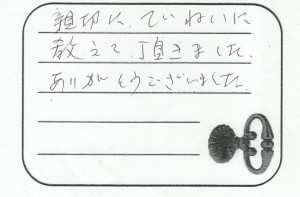 親切に、ていねいに
教えて、頂きました。
ありがとうございました。